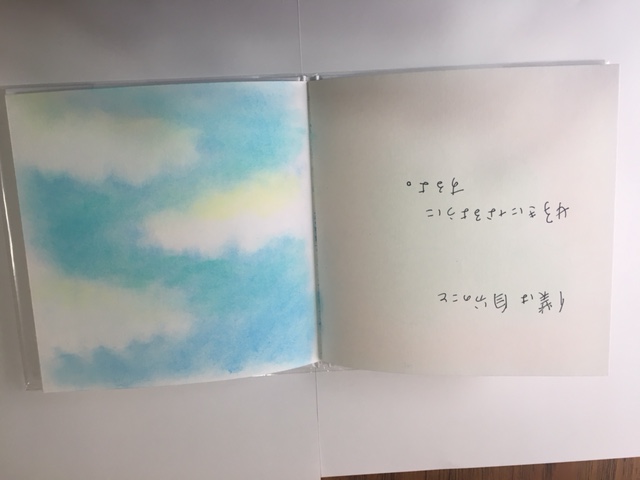 僕は自分のこと
好きになるように
するよ。